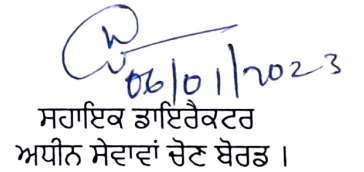 06/01/2023
ਸਹਾਇਕ ਡਾਇਰੈਕਟਰ
ਅਧੀਨ ਸੇਵਾਵਾਂ ਚੋਣ ਬੋਰਡ ।